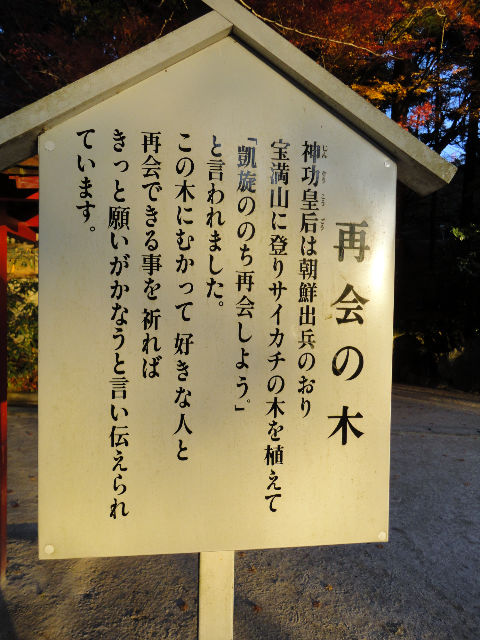 再会の木
神功皇后は朝鮮出兵のおり
宝満山に登りサイカチの木を植えて
「凱旋ののち再会しよう。」
と言われました。
この木にむかって 好きな人と
再会できる事を祈れば
きっと願いがかなうと言い伝えられ
ています。